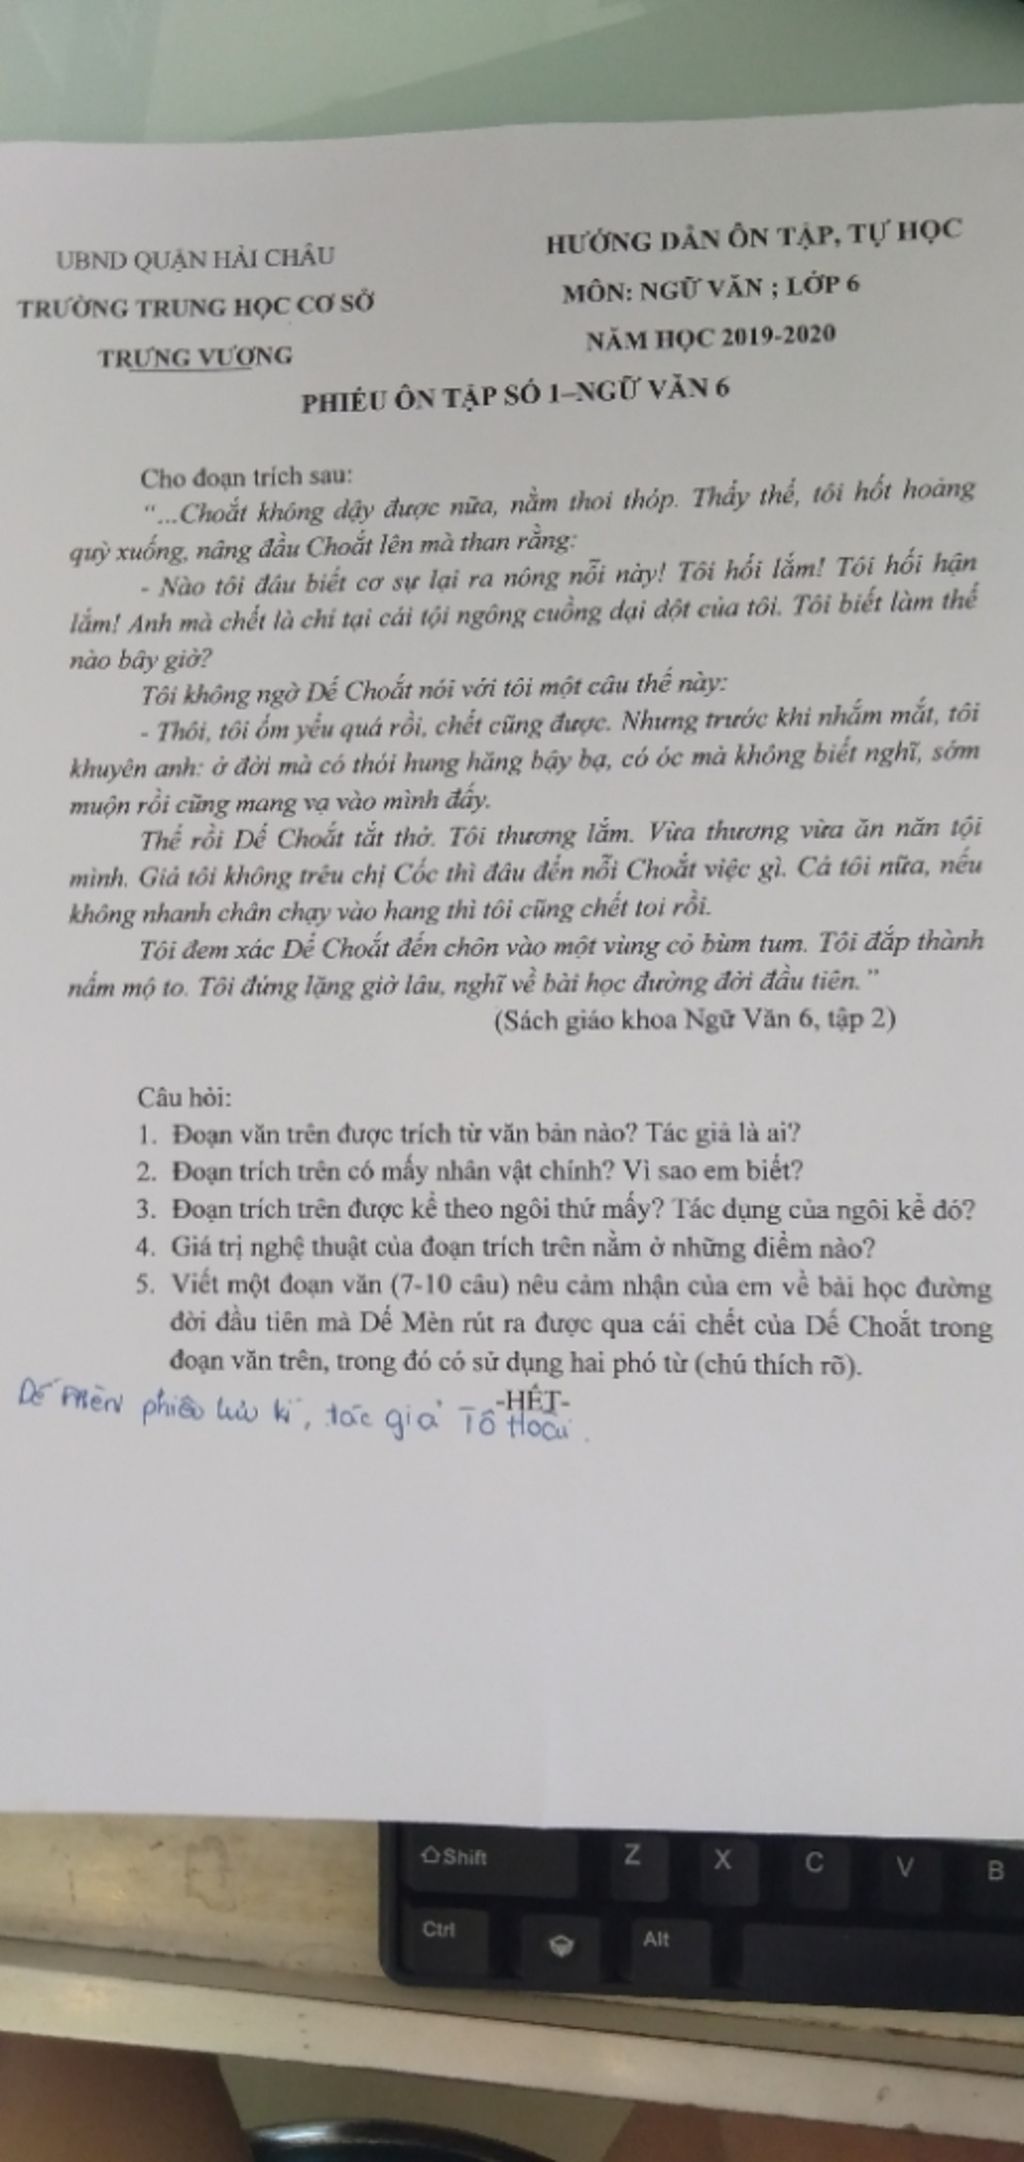 UBND QUẬN HẢI CHÂU
TRƯỜNG TRUNG HỌC CƠ SỞ
TRƯNG VƯƠNG
HƯỚNG DẪN ÔN TẬP, TỰ HỌC
MÔN: NGỮ VĂN ; LỚP 6
NĂM HỌC 2019-2020
PHIẾU ÔN TẬP SỐ 1–NGỮ VĂN 6
Cho đoạn trích sau:
“...Choắt không dậy được nữa, nằm thoi thóp. Thấy thế, tôi hốt hoảng
quỳ xuống, nâng đầu Choắt lên mà than rằng:
- Nào tôi đâu biết cơ sự lại ra nông nỗi này! Tôi hối lắm! Tôi hối hận
lắm! Anh mà chết là chỉ tại cái tội ngông cuồng dại dột của tôi. Tôi biết làm thế
nào bây giờ?
Tôi không ngờ Dế Choắt nói với tôi một câu thế này:
- Thôi, tôi ốm yếu quá rồi, chết cũng được. Nhưng trước khi nhắm mắt, tôi
khuyên anh: ở đời mà có thói hung hăng bậy bạ, có óc mà không biết nghĩ, sớm
muộn rồi cũng mang vạ vào mình đấy.
Thế rồi Dế Choắt tắt thở. Tôi thương lắm. Vừa thương vừa ăn năn tội
mình. Giá tôi không trêu chị Cốc thì đâu đến nỗi Choắt việc gì. Cả tôi nữa, nếu
không nhanh chân chạy vào hang thì tôi cũng chết toi rồi.
Tôi đem xác Dế Choắt đến chôn vào một vùng cỏ bùm tum. Tôi đắp thành
nấm mộ to. Tôi đứng lặng giờ lâu, nghĩ về bài học đường đời đầu tiên.”
(Sách giáo khoa Ngữ Văn 6, tập 2)
Câu hỏi:
1. Đoạn văn trên được trích từ văn bản nào? Tác giả là ai?
2. Đoạn trích trên có mấy nhân vật chính? Vì sao em biết?
3. Đoạn trích trên được kể theo ngôi thứ mấy? Tác dụng của ngôi kể đó?
4. Giá trị nghệ thuật của đoạn trích trên nằm ở những điểm nào?
5. Viết một đoạn văn (7-10 câu) nêu cảm nhận của em về bài học đường
đời đầu tiên mà Dế Mèn rút ra được qua cái chết của Dế Choắt trong
đoạn văn trên, trong đó có sử dụng hai phó từ (chú thích rõ).
-HẾT-
Dế Mèn phiêu lưu kí, tác giả Tô Hoài.
Shift Z X C V B
Ctrl Alt